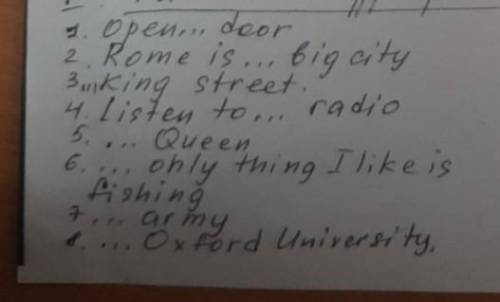 1. Open... door
2. Rome is... big city
3. ...King street.
4. Listen to... radio
5. ... Queen
6. ... only thing I like is
fishing
7. ... army
8. ... Oxford University.